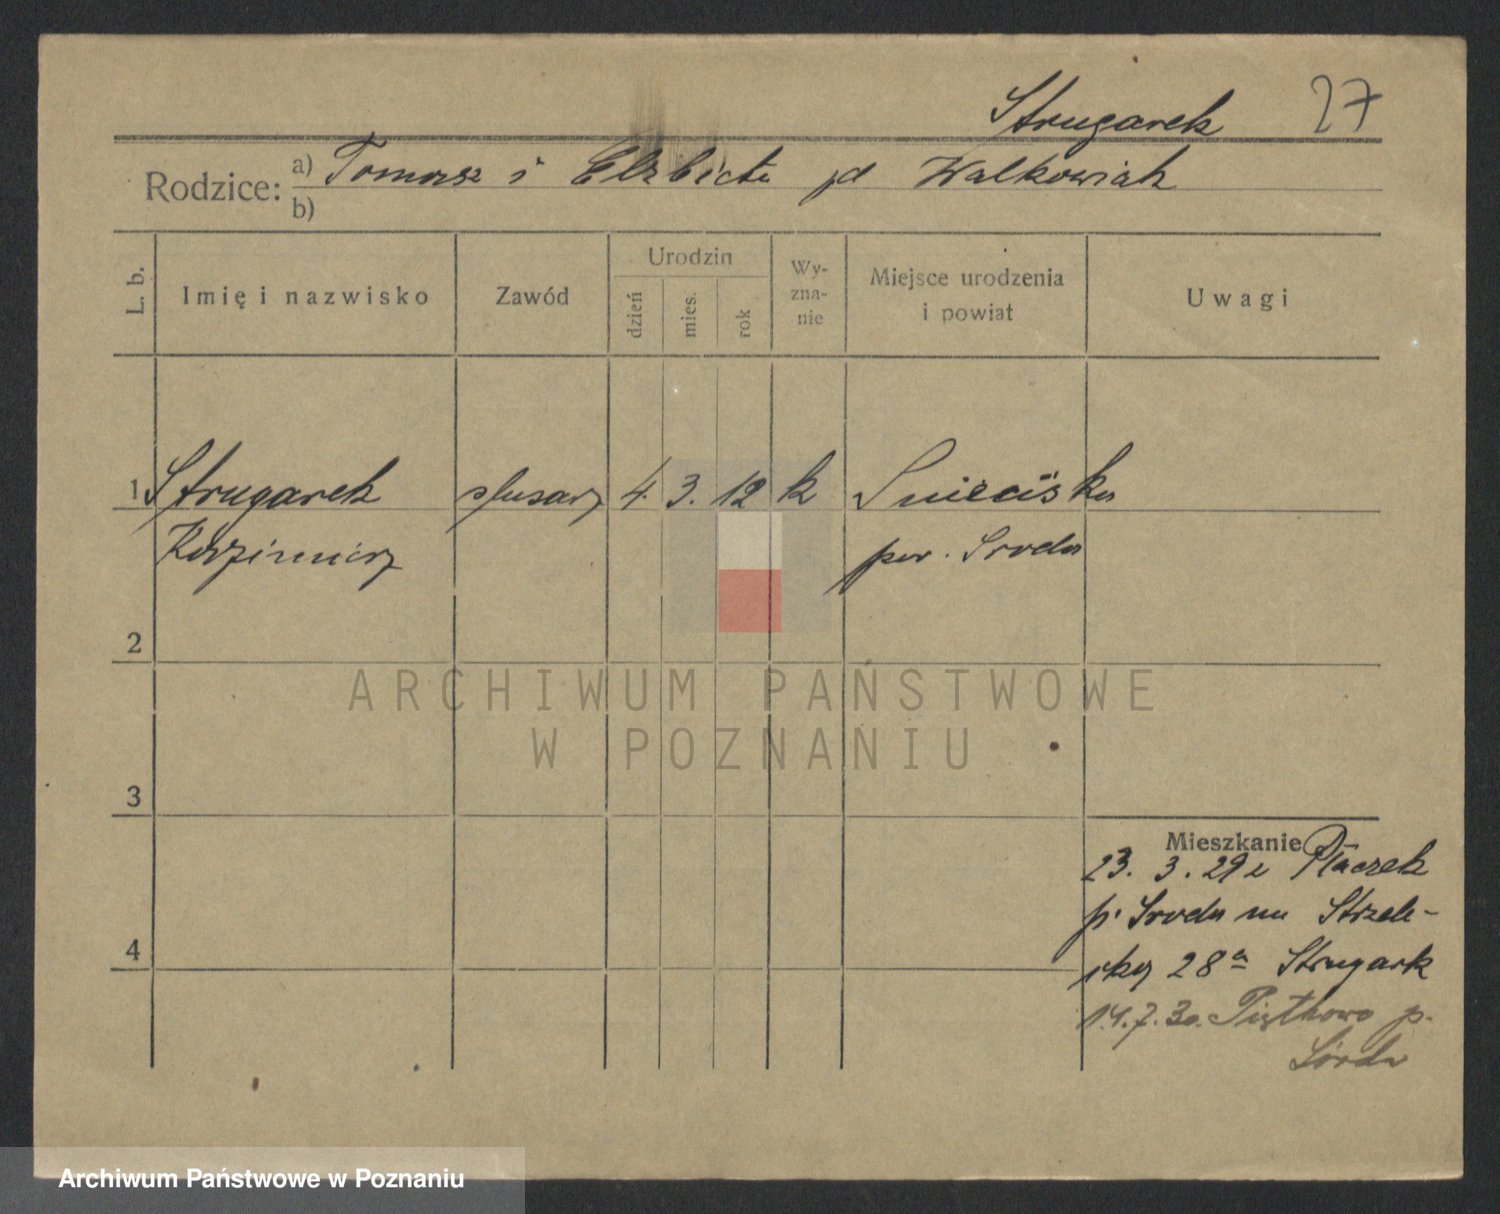 Strugarek 27
Rodzice: a) Tomasz i Elżbieta
b) Walkowiak
L. b. Imię i nazwisko Zawód Urodzin dzień mies. rok Wy-
zna-
nie Miejsce urodzenia
i powiat Uwagi
1 Strugarek ślusarz 4. 3. 12 k Śnieciska
Kazimierz pow. Środa
2
ARCHIWUM PAŃSTWOWE
W POZNANIU
3
Mieszkanie
23. 3. 29 z Płaczek
p. Środa na Strzele-
cką 28a Strugarek
14.7.30. Piątkowo p.
Środa
4
Archiwum Państwowe w Poznaniu